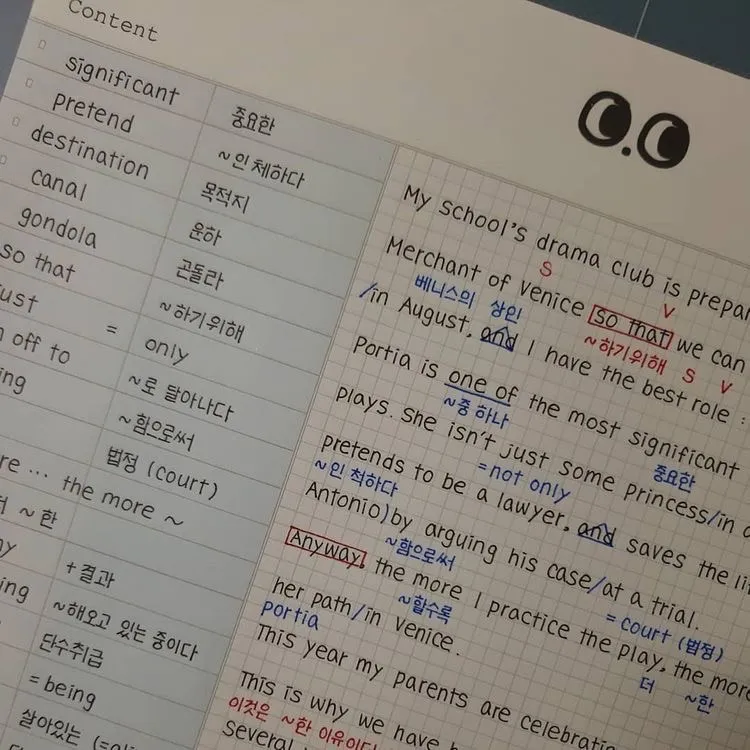 Content
significant 중요한
pretend ~인 체하다
destination 목적지
canal 운하
gondola 곤돌라
so that ~하기위해
just = only
off to ~로 달아나다
ing ~함으로써
법정 (court)
re ... the more ~
~한
+결과
ing ~해오고 있는 중이다
단수취급
= being
살아있는
My school's drama club is
S V
Merchant of Venice so that we can
베니스의 상인 ~하기위해 S V
/in August, and I have the best role :
Portia is one of the most significant
~중 하나 중요한
plays. She isn't just some princess/in
=not only
pretends to be a lawyer, and saves the
~인 척하다
Antonio) by arguing his case/at a trial.
~함으로써 = court (법정)
Anyway, the more I practice the play, the more
~할수록 더 ~한
her path/in Venice.
portia
This year my parents are
This is why we have
이것은 ~한 이유이다
Several